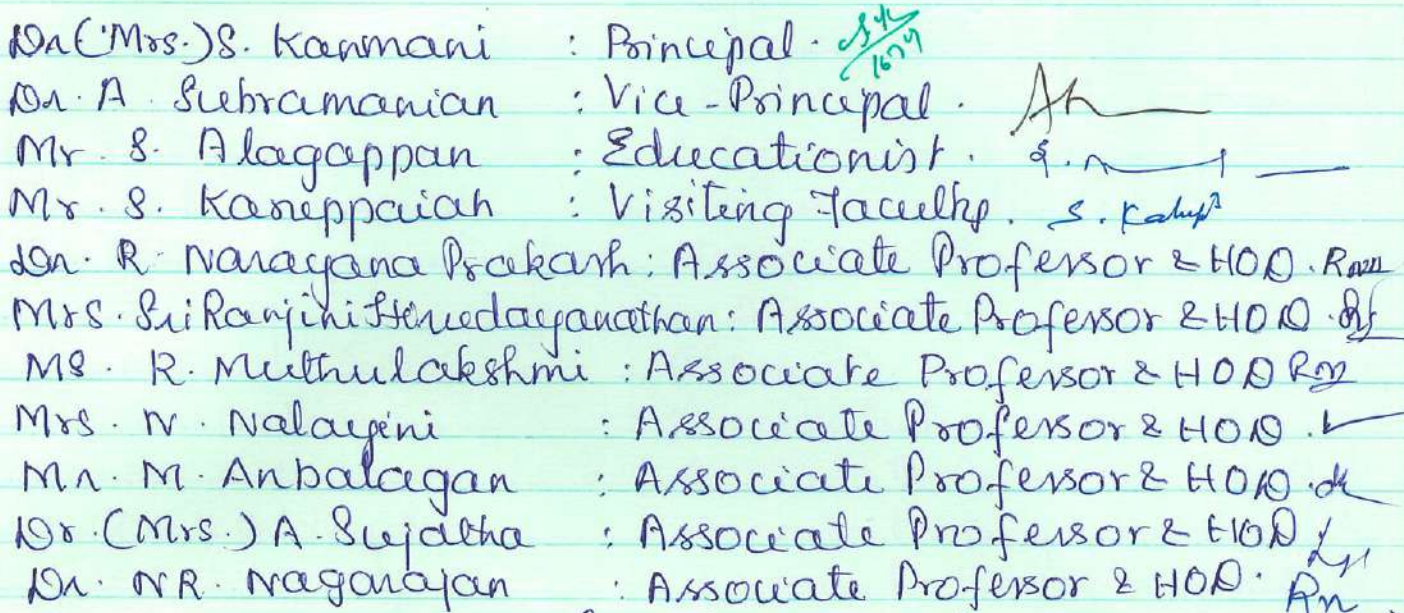 Dr (Mrs.) S. Kanmani : Principal.
Dr. A. Subramanian : Vice-Principal.
Mr. S. Alagappan : Educationist.
Mr. S. Karuppaiah : Visiting Faculty. S.
Dr. R. Narayana Prakash : Associate Professor & HOD.
Mrs. Sri Ranjini : Associate Professor & HOD.
Ms. R. Muthulakshmi : Associate Professor & HOD
Mrs. N. Nalayini : Associate Professor & HOD.
Mr. M. Anbalagan : Associate Professor & HOD.
Dr. (Mrs.) A. Sujatha : Associate Professor & HOD
Dr. NR. Nagarajan : Associate Professor & HOD.